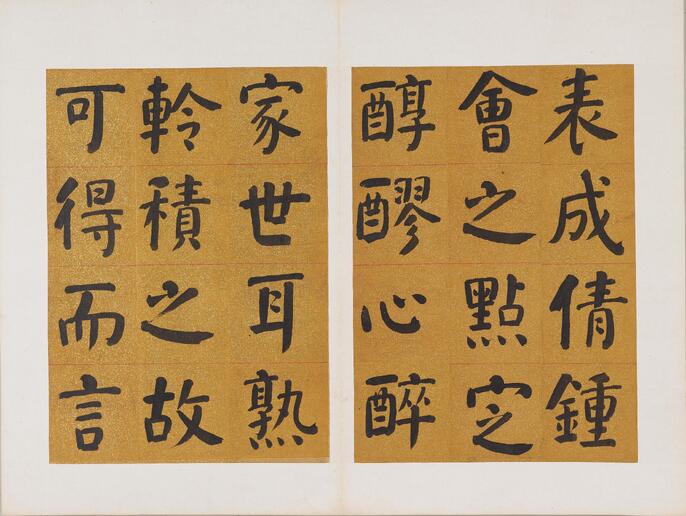 表成倩鍾
會之點㝎
醇醪心醉
家世耳熟
軨積之故
可得而言